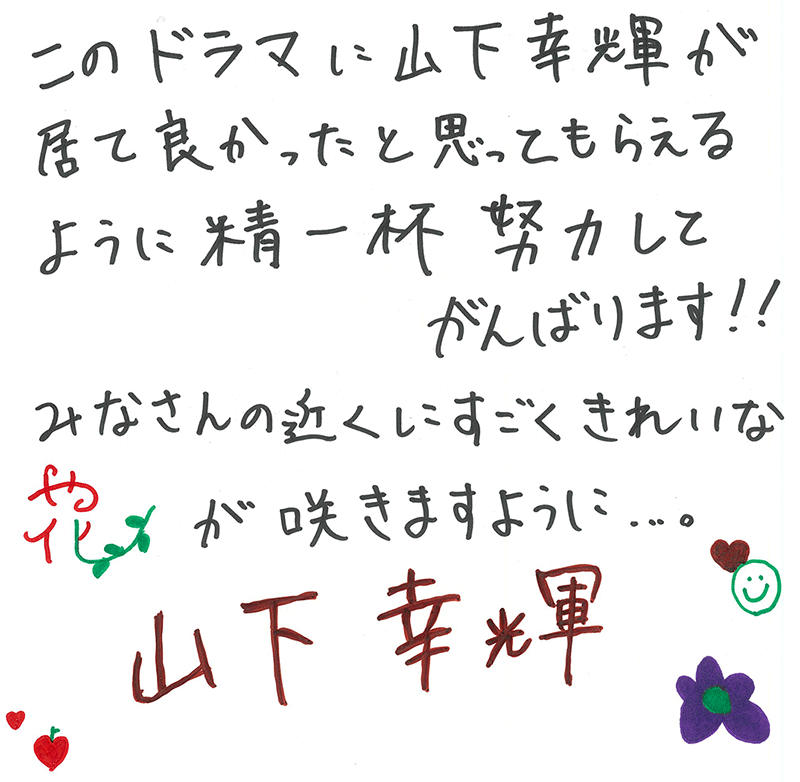 このドラマに山下幸輝が
居て良かったと思ってもらえる
ように精一杯 努力して
がんばります!!
みなさんの近くにすごくきれいな
花が咲きますように...。
山下幸輝